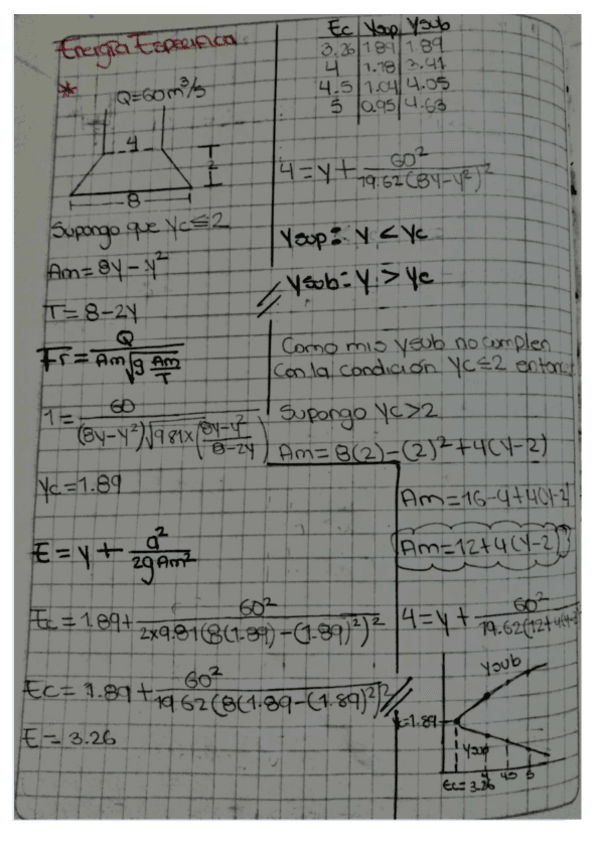 Energía Específica
Q=60m³/s
4
2
8
Supongo que Yc≤2
Am=8y-y²
T=8-2y
Fr= Q / Am√g Am/T
1= 60 / (8y-y²)√9.81x(8y-y²/8-2y)
Yc=1.89
E=y+ Q²/2gAm²
Ec=1.89+ 60² / 2x9.81(8(1.89)-(1.89)²)²
Ec=1.89+ 60² / 19.62(8(1.89-(1.89)²)²
E=3.26
Ec Ysup Ysub
3.26 1.89 1.89
4 1.18 3.41
4.5 1.04 4.05
5 0.95 4.63
4=y+ 60² / 19.62(8y-y²)²
Ysup= y<Yc
Ysub= y>Yc
Como mis ysub no cumplen
con la condición Yc≤2 entonc
Supongo Yc>2
Am=8(2)-(2)²+4(y-2)
Am=16-4+4(y-2
Am=12+4(y-2)
4=y+ 60² / 19.62(12+4(y-2
Ysub
Yc=1.89
Ysup
Ec=3.26 4 4.5 5